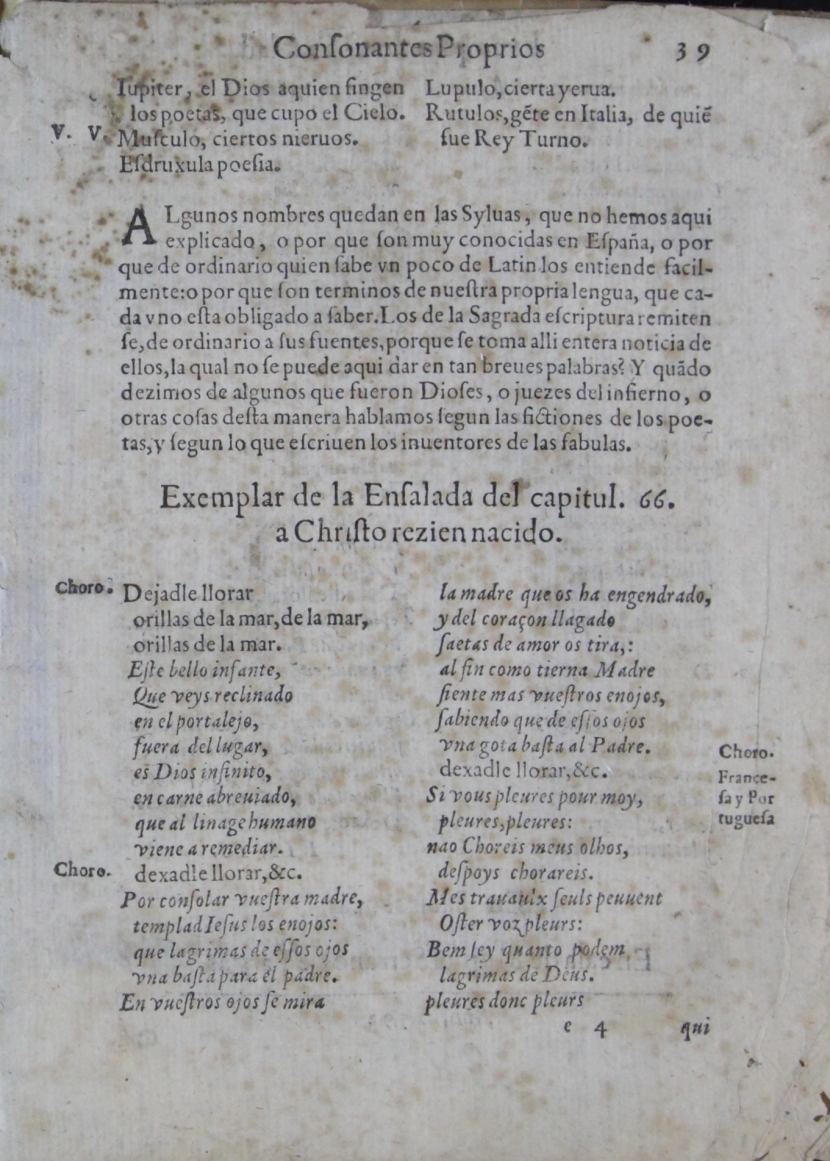 Conſonantes Proprios 39
Iupiter, el Dios aquien fingen
los poetas, que cupo el Cielo.
V. V. Muſculo, ciertos nieruos.
Eſdruxula poeſia.
Lupulo, cierta yerua.
Rutulos, gẽte en Italia, de quiẽ
fue Rey Turno.
ALgunos nombres quedan en las Syluas, que no hemos aqui
explicado, o por que ſon muy conocidas en Eſpaña, o por
que de ordinario quien ſabe vn poco de Latin los entiende facil-
mente: o por que ſon terminos de nueſtra propria lengua, que ca-
da vno eſta obligado a ſaber. Los de la Sagrada eſcriptura remiten
ſe, de ordinario a ſus fuentes, porque ſe toma alli entera noticia de
ellos, la qual no ſe puede aqui dar en tan breues palabras? Y quãdo
dezimos de algunos que fueron Dioſes, o juezes del infierno, o
otras coſas deſta manera hablamos ſegun las fictiones de los poe-
tas, y ſegun lo que eſcriuen los inuentores de las fabulas.
Exemplar de la Enſalada del capitul. 66.
a Chriſto rezien nacido.
Choro. Dejadle llorar
orillas de la mar, de la mar,
orillas de la mar.
Eſte bello infante,
Que veys reclinado
en el portalejo,
fuera del lugar,
es Dios infinito,
en carne abreuiado,
que al linage humano
viene a remediar.
Choro. dexadle llorar, &c.
Por conſolar vueſtra madre,
templad Ieſus los enojos:
que lagrimas de eſſos ojos
vna baſta para el padre.
En vueſtros ojos ſe mira
la madre que os ha engendrado,
y del coraçon llagado
ſaetas de amor os tira,:
al fin como tierna Madre
ſiente mas vueſtros enojos,
ſabiendo que de eſſos ojos
vna gota baſta al Padre.
dexadle llorar, &c. Choro.
Si vous pleures pour moy,
pleures, pleures:
France-
ſa y Por
tugueſa
nao Choreis meus olhos,
deſpoys chorareis.
Mes trauaulx ſeuls peuuent
Oſter voz pleurs:
Bem ſey quanto podem
lagrimas de Deus.
pleures donc pleurs
e 4 qui